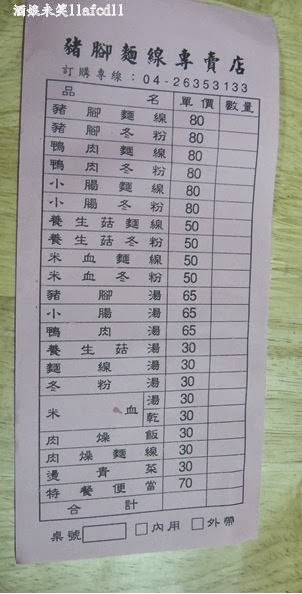 酒娘未笑llafcdll
豬腳麵線專賣店
訂購專線：04-26353133
品名 單價 數量
豬腳麵線 80
豬腳冬粉 80
鴨肉麵線 80
鴨肉冬粉 80
小腸麵線 80
小腸冬粉 80
養生菇麵線 50
養生菇冬粉 50
米血麵線 50
米血冬粉 50
豬腳湯 65
小腸湯 65
鴨肉湯 65
養生菇湯 30
麵線湯 30
冬粉湯 30
米血 湯 30
乾 30
肉燥飯 30
肉燥麵線 30
燙青菜 30
特餐便當 70
合計
桌號 □內用 □外帶